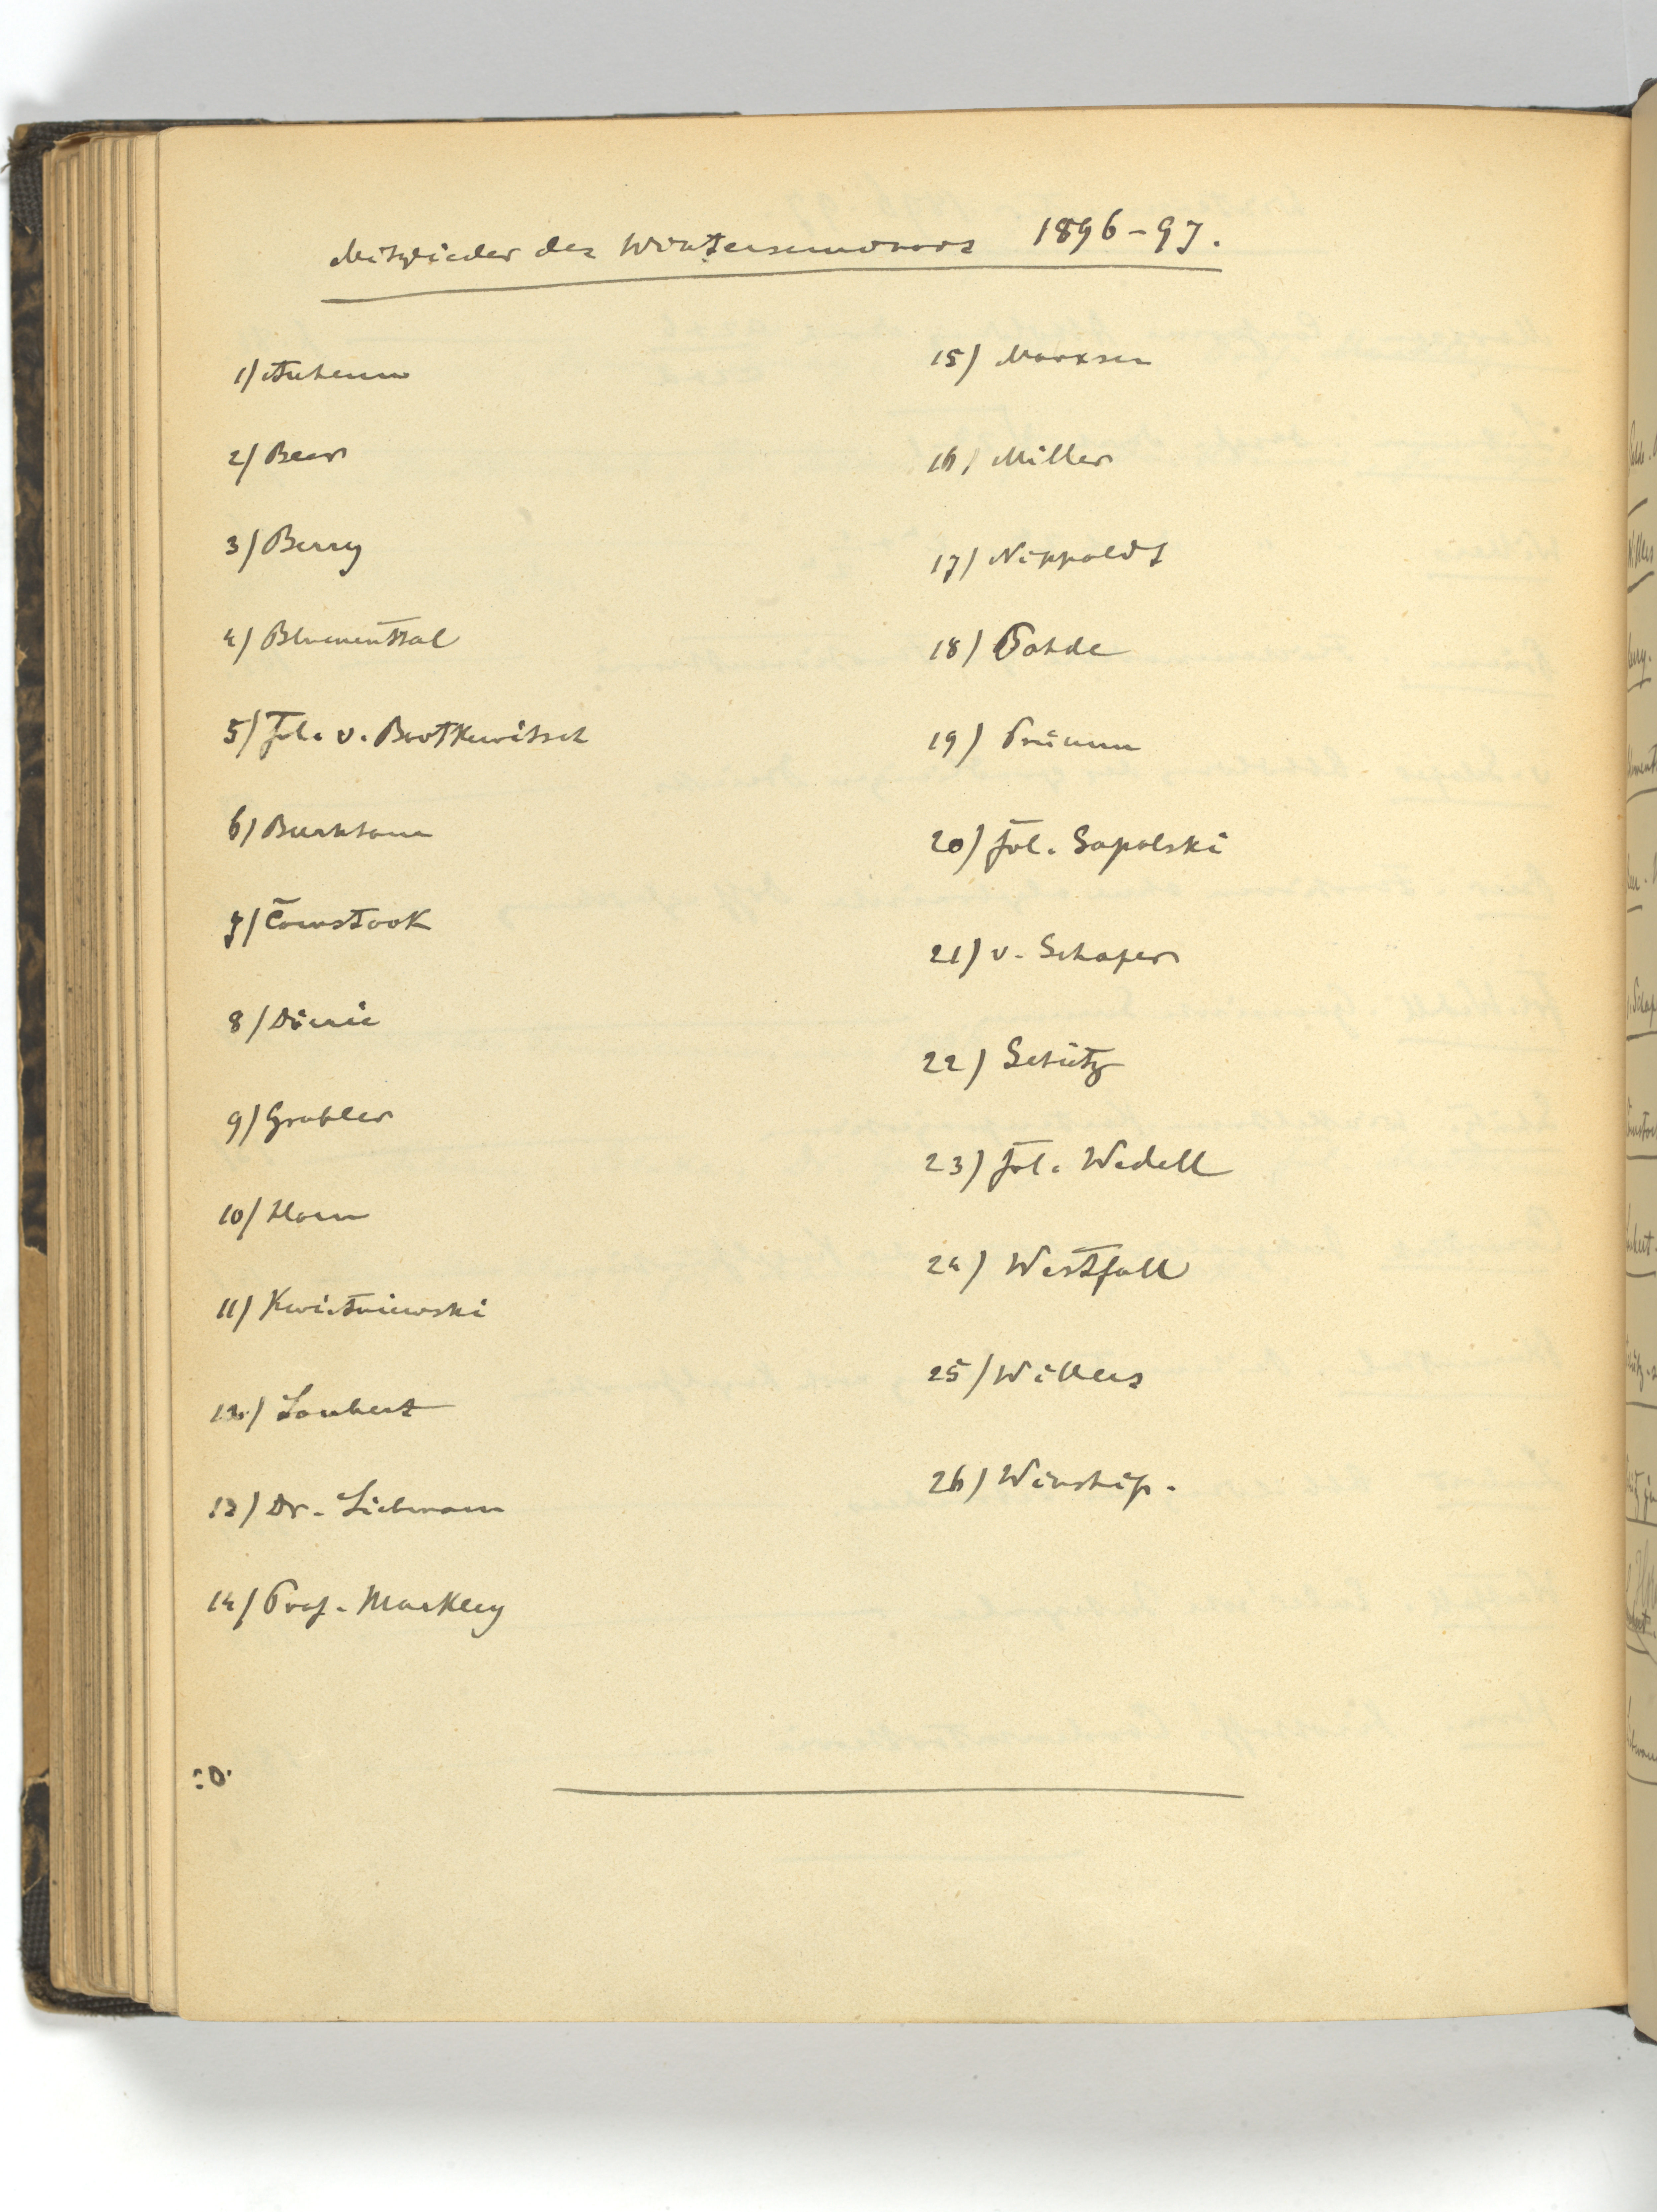 Mitglieder des Winterseminars 1896-97.
1)
2) Beer
3) Berry
4) Blumenthal
5) Frl. v. Bortkewitsch
6) Burkham
7) Comstock
8)
9) Grabler
10) Horn
11) Kwietniewski
12) Laubert
13) Dr. Liebmann
14) Prof. Markley
15) Marxsen
16) Miller
17) Nippoldt
18) Pohde
19) Prümm
20) Frl. Sapolski
21) v. Schaper
22) Schütz
23) Frl. Wedell
24) Westfall
25) Willers
26) Winship.